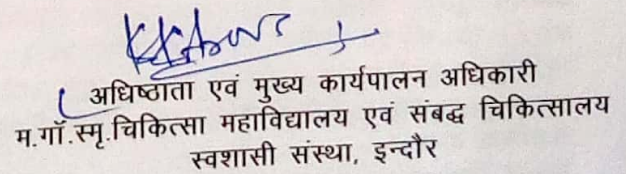 अधिष्ठाता एवं मुख्य कार्यपालन अधिकारी
म.गाॅ.स्मृ.चिकित्सा महाविद्यालय एवं संबद्ध चिकित्सालय
स्वशासी संस्था, इन्दौर